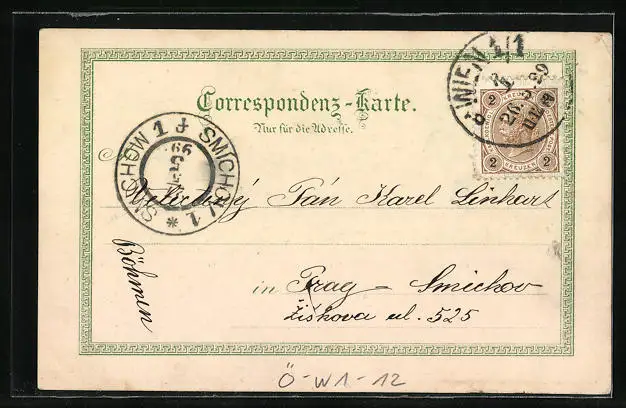 WIEN 1/1
Correspondenz-Karte.
Nur für die Adresse.
2 KREUZER 2
2 KREUZER 2
SMICHOW 1 SMICHOV 1
Velectěný Pán Karel Linhart
Böhmen
in Prag - Smichov
Žižkova ul. 525
Ö-W1-12